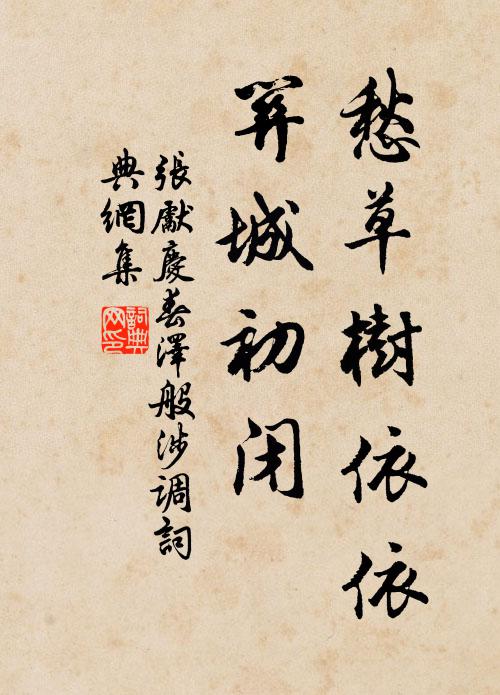 愁草樹依依
关城初闭
張獻慶春澤般涉调詞
典網集
詞典
网印